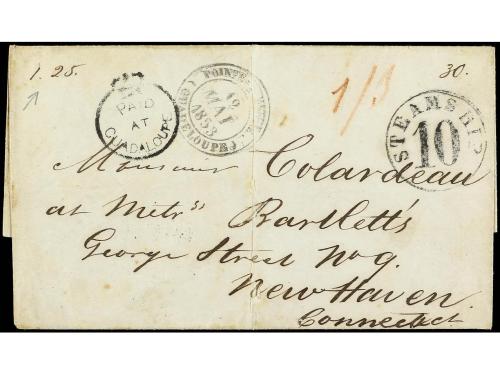 1. 25.
30.
PAID
AT
GUADALOUPE
POINTE A PITRE
MAI
1853
(GUADELOUPE)
1/3
STEAMSHIP
10
Monsieur Colardeau
at Metrss Bartlett's
George Street No 9.
New Haven
Connectict